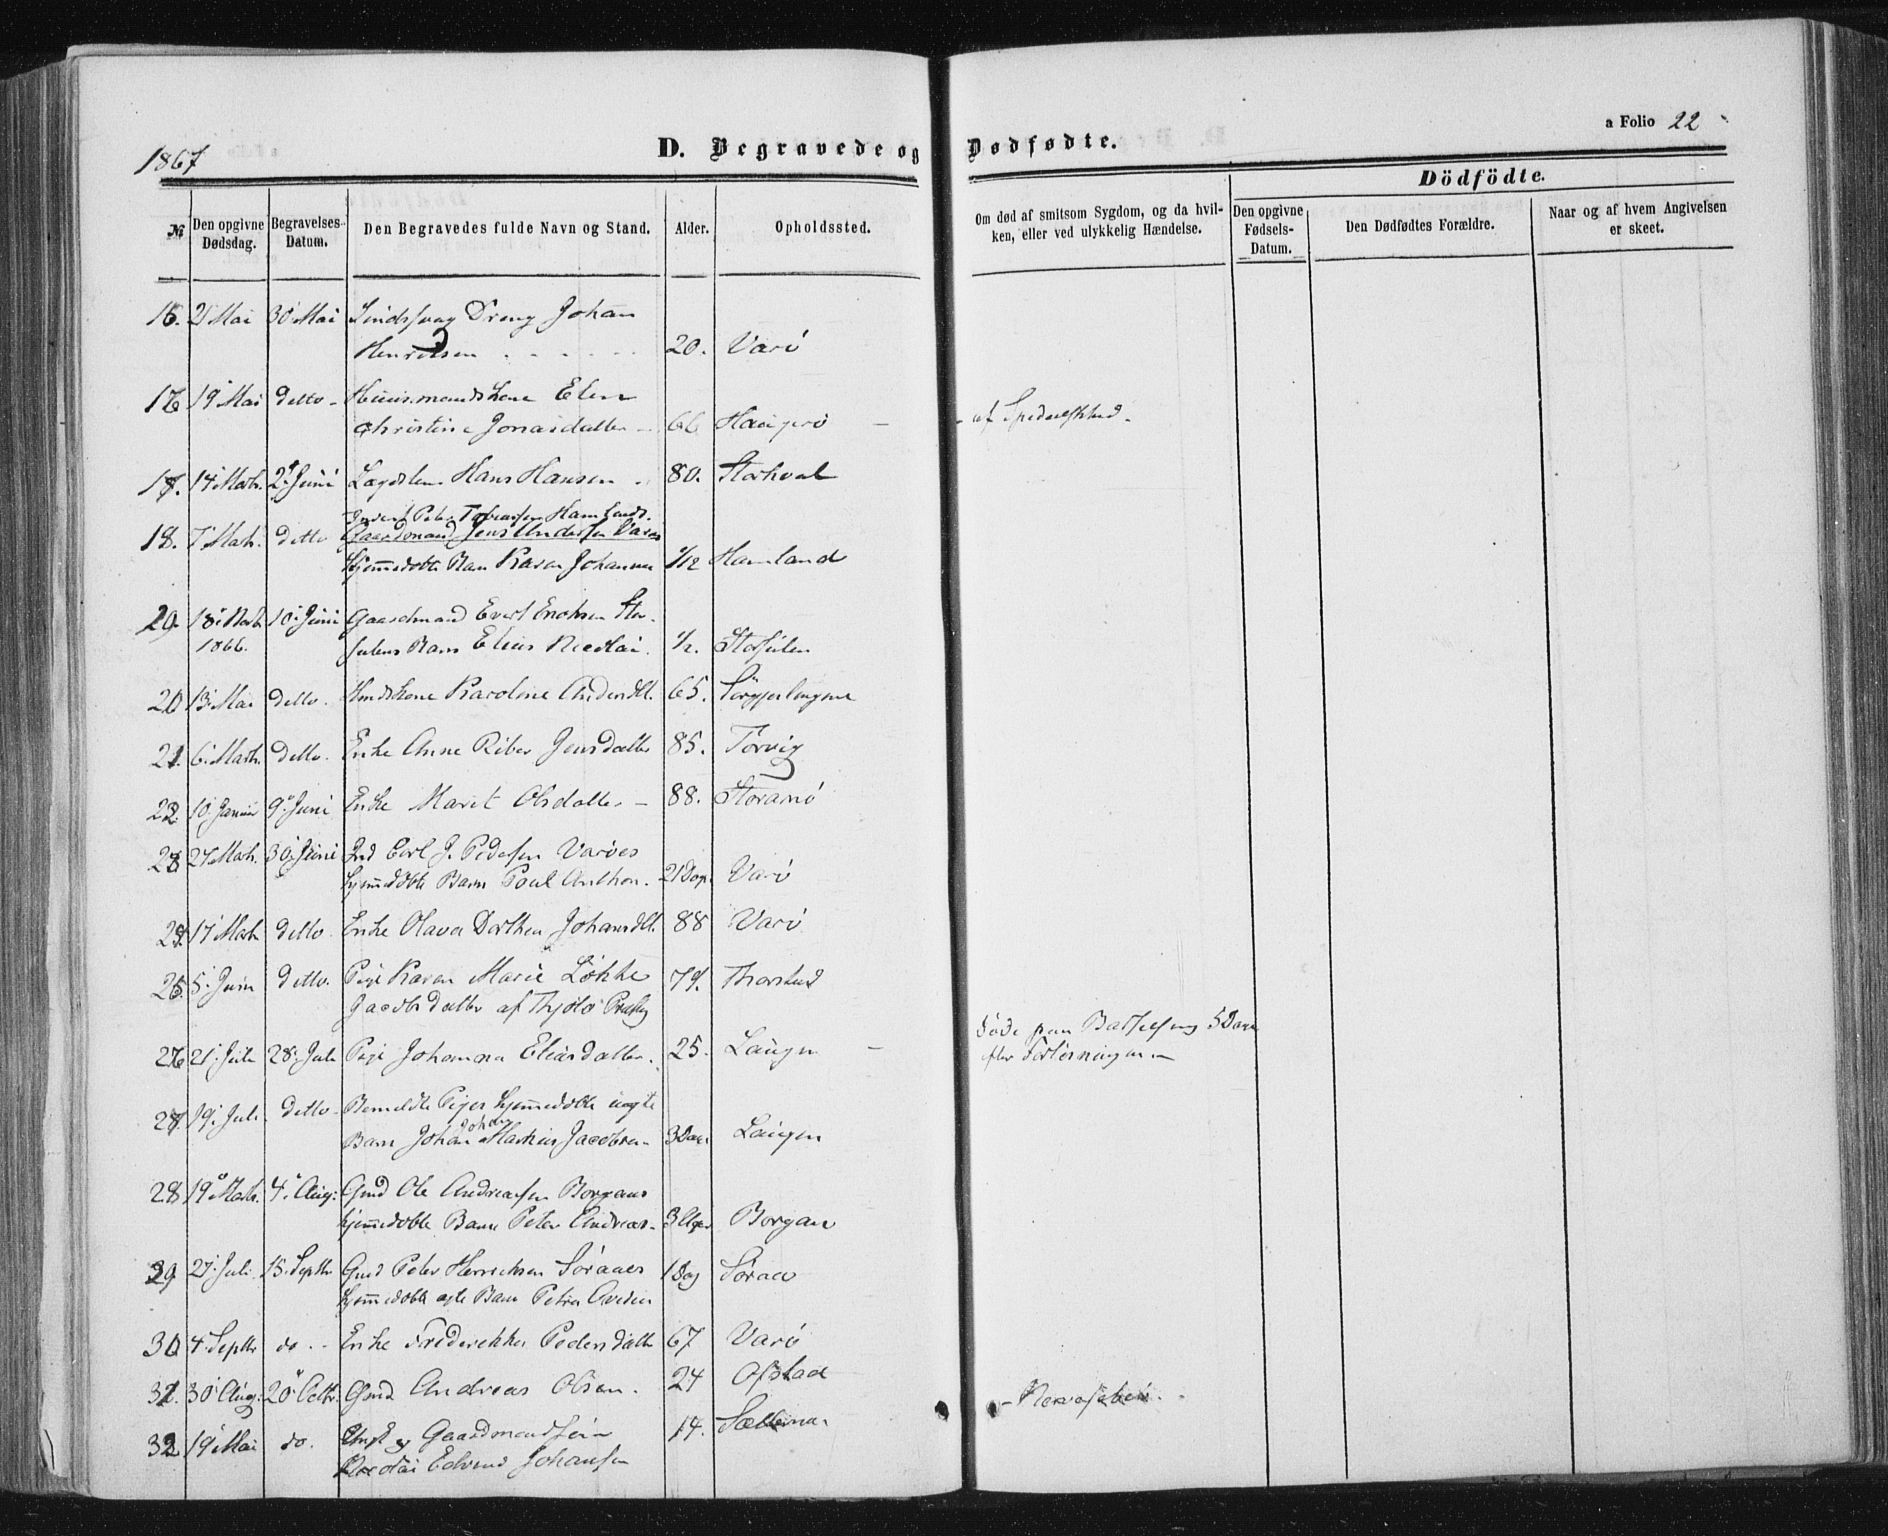 1867
D. Begravede og Dødfødte.
a Folio 22
Dödfödte.
№
Den opgivne Dødsdag.
Begravelses-Datum.
Den Begravedes fulde Navn og Stand.
Alder.
Opholdssted.
Om død af smitsom Sygdom, og da hvil-
ken, eller ved ulykkelig Hændelse.
Den opgivne Fødsels-Datum.
Den Dødfødtes Forældre.
Naar og af hvem Angivelsen
er skeet.
15. 2 Mai 30 Mai Sindssvag Dreng Johan
Henriksen 20. Varö
16 19 Mai detto Huusmandskone Elen
Christine Jonasdatter 66 af Spedalskhed
17. 14 Marts 2 Juni Lægdslem Hans Hansen 80. Storhval
Inderst Peter Tobiassen Hamlands
18. 7 Marts detto Gaardmand Jens Andersen Varøs
hjemmedøbte Barn Karen Johanna 1/12 Hamland
19. 18 10 Juni Gaardmand Evert Enoksen Stor-
1866. sulens Barn Elias Nicolai. 1/2. Storsulen
20 13 Mai detto. Hmdskone Karoline Andersdtt. 65.
21. 6 Marts detto. Enke Anne Riber Jensdatter 85. Torvig
22. 10 Januar 9 Juni Enke Marit Olsdatter 88.
23 27 Marts. 30 Juni Ind Carl J. Pedersen Varöes
hjemmedöbte Barn Poul Anthon. 21 Dage Varö
24. 17 Marts detto Enke Olava Dorthea Johansdtt. 88 Varö
25. 5 Juni detto. Pige Karen Marie Lökke
Jacobsdatter af Thjötö 79. Thorstad
26 21 Juli 28 Juli Pige Johanna Eliasdatter. 25. Laugen döde paa Barselseng 5 Dage
efter Forløsningen
27. 19 Juli detto Bemeldte Piges hjemmedöbte uægte
Johan
Barn Johan Martius Jacobsen 3 Dage Laugen
28 19 Marts. 4 Aug: Gmd Ole Andreassen Borgans
hjemmedöbte Barn Peter Andreas 3 Uger Borgan
29 27 Juli 15 Septbr Gmd Peter Henriksen Söraaes
hjemmedöbte ægte Barn Petra 1 Dag
30 4 Septbr do. Enke Frederikke Pedersdatter 67 Varö
31. 30 Aug: 20 Octbr. Gmd Andreas Olsen. 24 Ofstad Nervefeber.
32 19 Mai do. Ungk og Gaardmandssön
Nicolai Edvard Johansen 14.